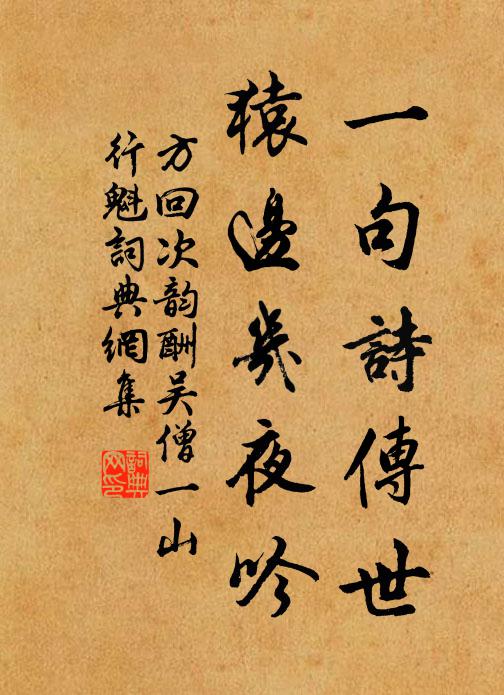 一句詩傳世
猿邊幾夜吟
方回次韵酬吴僧一山
行魁詞典網集
詞典网印